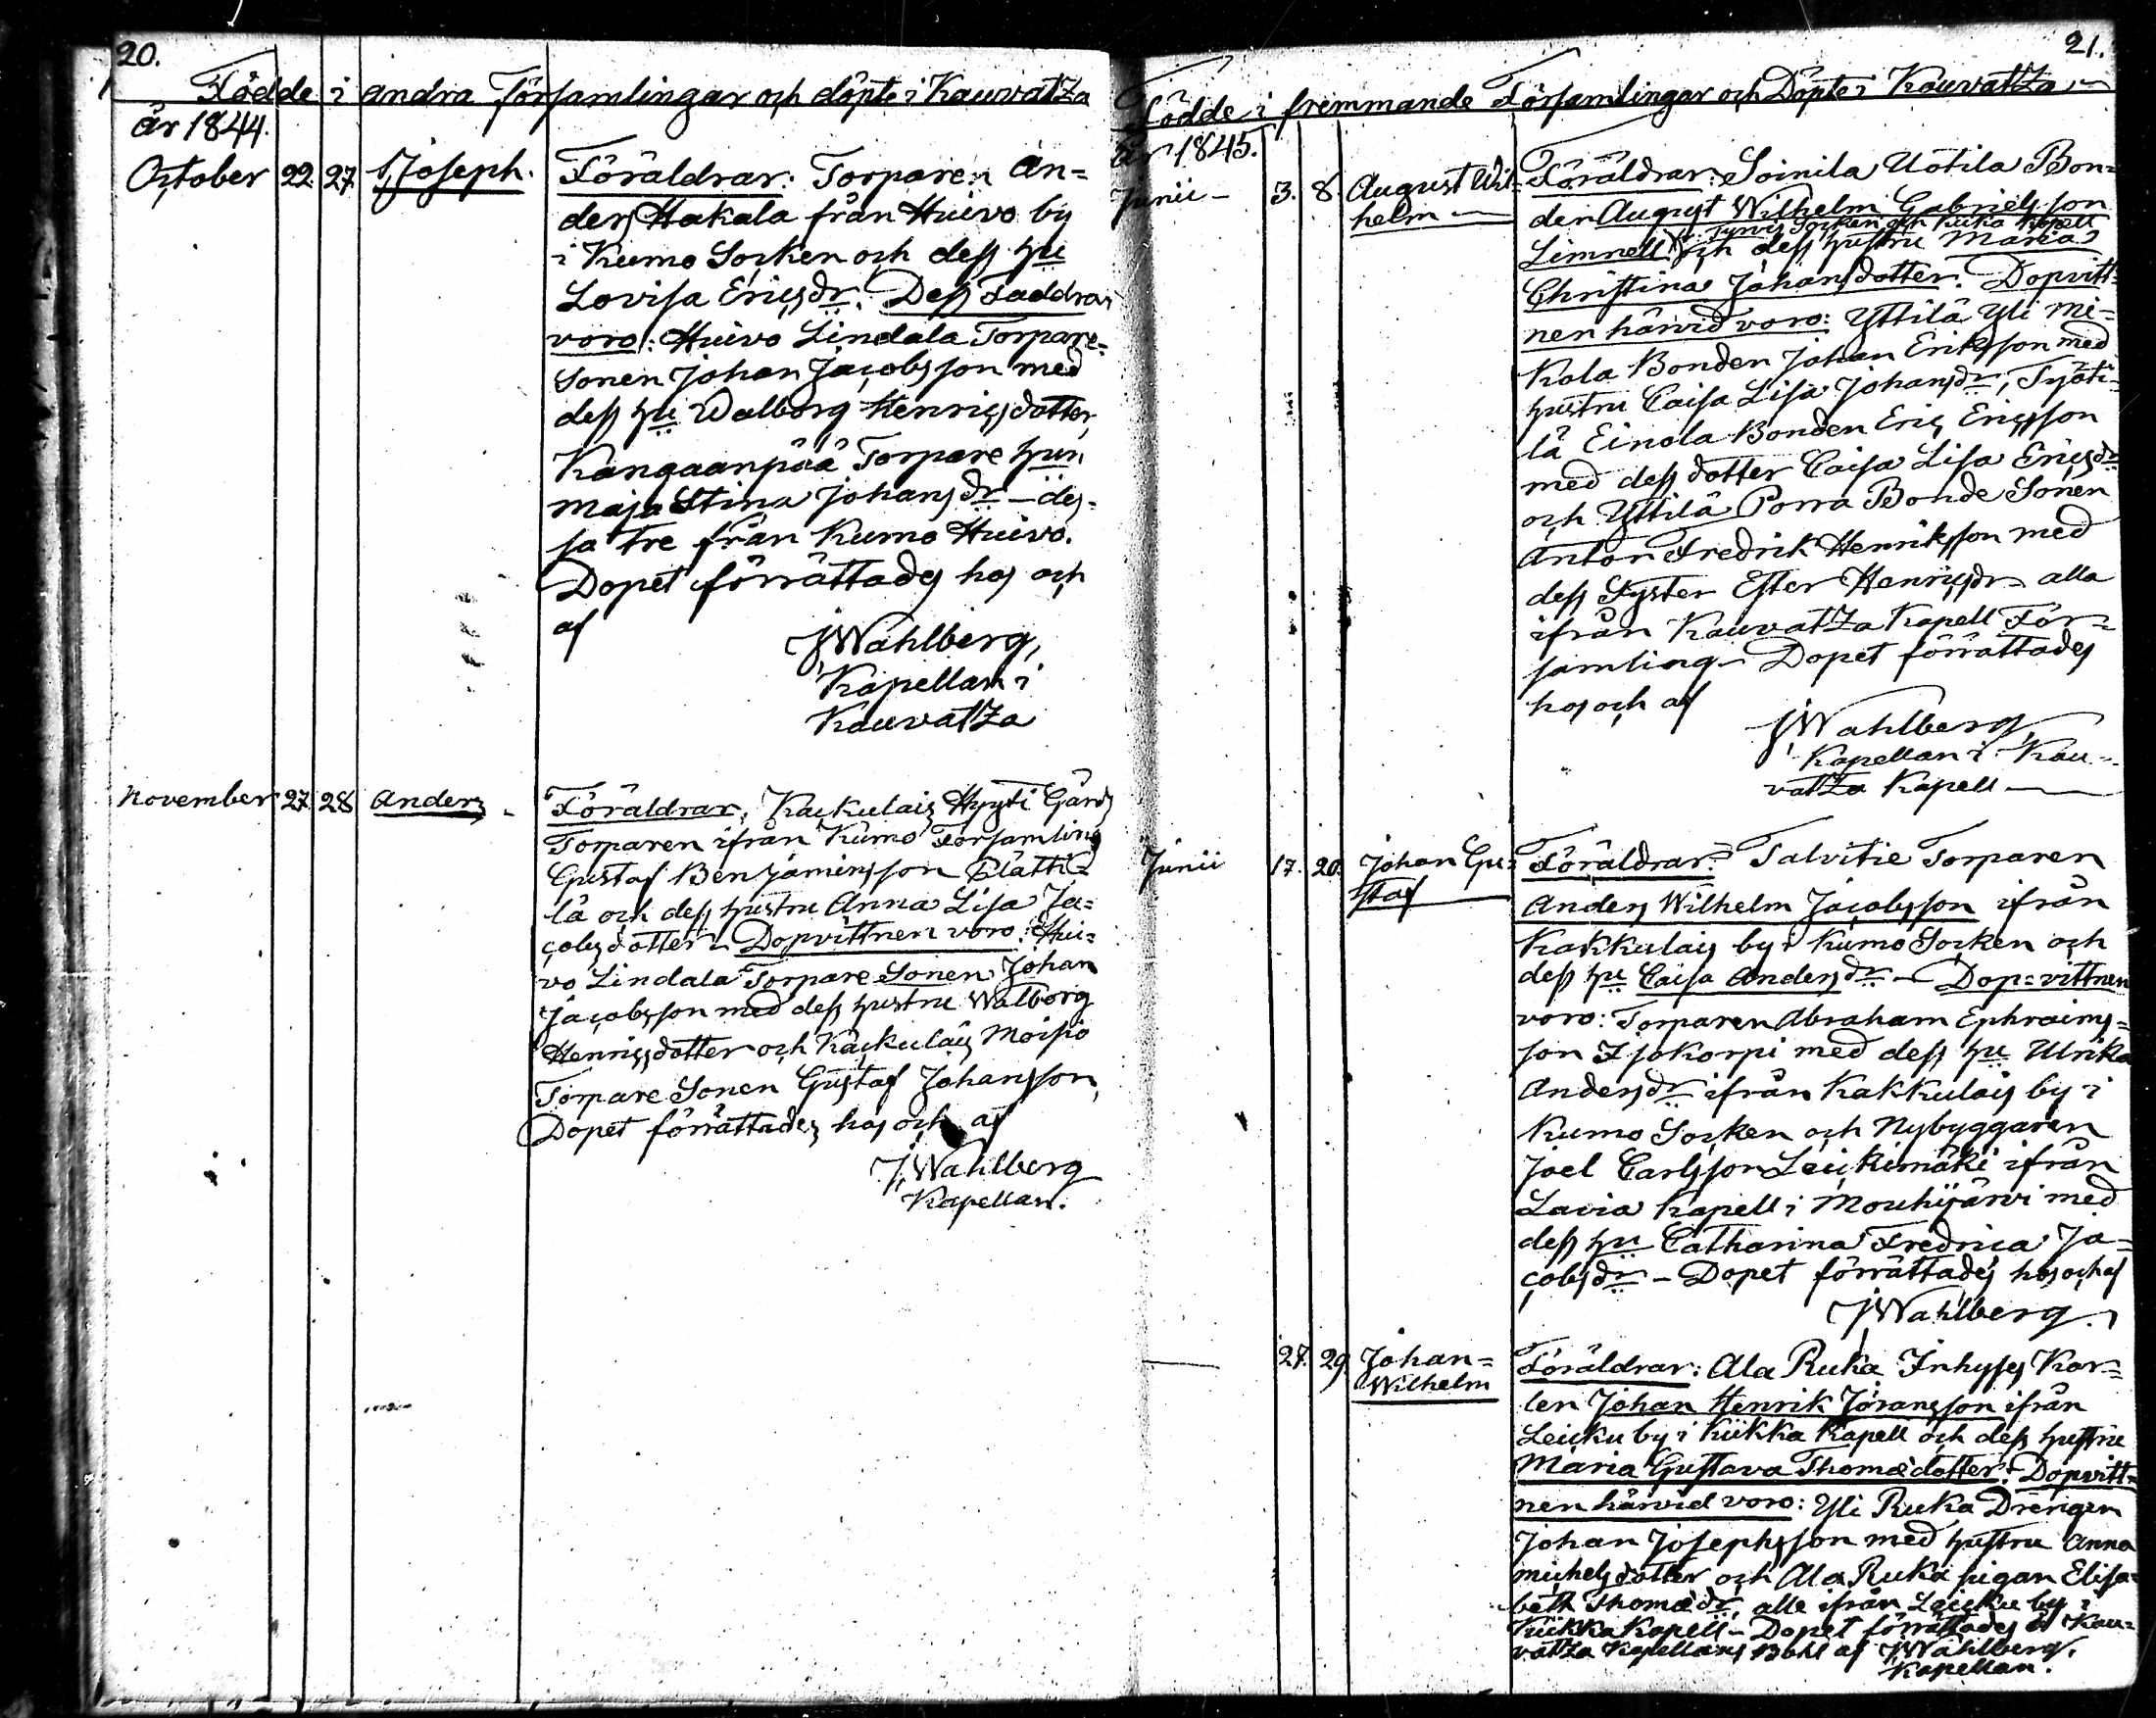 20.
Födde i andra Församlingar och döpte i Kauvatza
år 1844.
October 22. 27. Joseph. Föräldrar: Torparen An=
ders Hakala från Huivo by
i Kumo Socken och dess hu
Lovisa Ericsdr. Dess Faddrar
voro: Huivo Lindala Torpare=
Sonen Johan Jacobsson med
dess hu Walborg Henricsdotter,
Kangaanpää Torpare hun
Maja Stina Johansdr – des=
sa tre från Kumo Huivo.
Dopet förrättades hos och
af
JWahlberg,
Kapellan i
Kauvatza
November 27. 28 Anders Föräldrar, Kackulais Hyyti Gårds
Torparen ifrån Kumo Församling
Gustaf Benjaminsson Plätti=
lä och dess hustru Anna Lisa Ja=
cobsdotter. Dopvittnen voro: Hui=
vo Lindala Torpare Sonen Johan
Jacobsson med dess hustru Walborg
Henricsdotter och Kackulais Moisio
Torpare Sonen Gustaf Johansson,
Dopet förrättades hos och af
J,Wahlberg
Kapellan.
21.
Födde i fremmande Församlingar och Döpte i Kauvatza
år 1845.
Junii – 3. 8. August Wil= Föräldrar: Soinila Uotila Bon=
helm den August Wilhelm Gabrielsson
i Tyrvis Socken och Kiika Kapell
Limnell och dess hustru Maria
Christina Johansdotter. Dopvitt=
nen härvid voro: Yttilä Yli Mi=
kola Bonden Johan Eriksson med
hustru Caisa Lisa Johansdr, Työti=
lä Einola Bonden Eric Ericsson
med dess dotter Caisa Lisa Ericsdr
och Yttilä Porra Bonde Sonen
Anton Fredrik Henriksson med
dess Syster Ester Henricsdr – alla
ifrån Kauvatza Kapell För=
samling – Dopet förrättades
hos och af
JWahlberg
Kapellan i Kau=
vatza Kapell
Junii 17. 20. Johan Gu= Föräldrar: Talvitie Torparen
staf Anders Wilhelm Jacobsson ifrån
Kakkulais by i Kumo Socken och
dess hu Caisa Andersdr – Dop=vittnen
voro: Torparen Abraham Ephraims=
son Isokorpi med dess hu Ulrika
Andersdr ifrån Kakkulais by i
Kumo Socken och Nybyggaren
Joel Carlsson Leickimäki ifrån
Lavia Kapell i Mouhijärvi med
dess hu Catharina Fredrica Ja=
cobsdr – Dopet förrättades hos och af
JWahlberg.
27. 29. Johan= Föräldrar: Ala Ruka Inhyses Kar=
Wilhelm len Johan Henrik Jöransson ifrån
Leicku by i Kiikka Kapell och dess hustru
Maria Gustava Thomædotter. Dopvitt=
nen härvid voro: Yli Ruka Drengen
Johan Josephsson med hustru Anna
Michelsdotter och Ala Ruka pigan Elisa=
beth Thomædr, alle ifrån Leicku by i
Kiikka Kapell – Dopet förrättades å Kau=
vatza Kapellans Bohl af JWahlberg.
Kapellan.